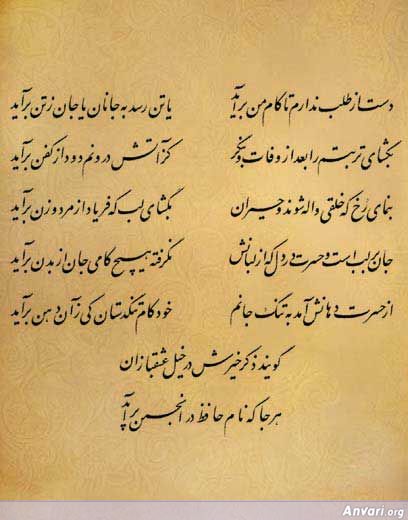 دست از طلب ندارم تا کام من برآید یا تن رسد به جانان یا جان ز تن برآید
بگشای تربتم را بعد از وفات و بنگر کز آتش درونم دود از کفن برآید
بنمای رخ که خلقی واله شوند و حیران بگشای لب که فریاد از مرد و زن برآید
جان بر لب است و حسرت در دل که از لبانش نگرفته هیچ کامی جان از بدن برآید
از حسرت دهانش آمد به تنگ جانم خود کام تنگدستان کی زآن دهن برآید
گویند ذکر خیرش در خیل عشقبازان
هر جا که نام حافظ در انجمن برآید
Anvari.org